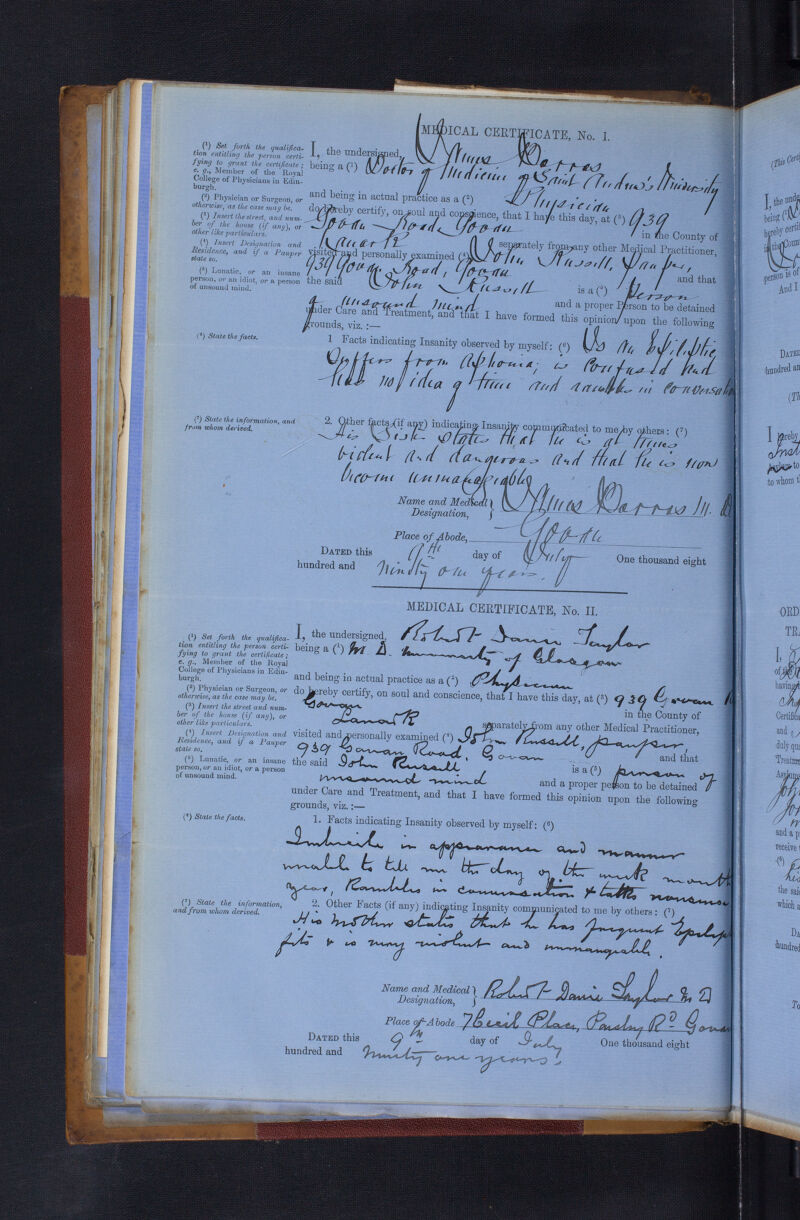 MEDICAL CERTIFICATE, No. I.
(¹) Set forth the qualifica-
tion entitling the person certi-
fying to grant the certificate;
e. g., Member of the Royal
College of Physicians in Edin-
burgh.
(²) Physician or Surgeon, or
otherwise, as the case may be.
(³) Insert the street, and num-
ber of the house (if any), or
other like particulars.
(⁴) Insert Designation and
Residence, and if a Pauper
state so.
(⁵) Lunatic, or an insane
person, or an idiot, or a person
of unsound mind.
(⁶) State the facts.
(⁷) State the information, and
from whom derived.
I, the undersigned, James
being a (¹) Doctor of Medicine of Saint Andrew's University
and being in actual practice as a (²) Physician
do hereby certify, on soul and conscience, that I have this day, at (³) 939
Govan Road Govan in the County of
Lanark separately from any other Medical Practitioner,
visited and personally examined (⁴) John Russell, Pauper,
939 Govan Road, Govan and that
the said John Russell is a (⁵) Person
of unsound mind and a proper Person to be detained
under Care and Treatment, and that I have formed this opinion upon the following
grounds, viz. :—
1 Facts indicating Insanity observed by myself: (⁶) Is an Epileptic
Suffers from Aphonia; is Confused and
has no idea of time and rambles in conversation
2. Other facts (if any) indicating Insanity communicated to me by others: (⁷)
His Sister States that he is at times
violent and dangerous and that he is now
become unmanageable
Name and Medical Designation, James M.D
Place of Abode, Govan
DATED this 9th day of July One thousand eight
hundred and ninety one years.
MEDICAL CERTIFICATE, No. II.
(¹) Set forth the qualifica-
tion entitling the person certi-
fying to grant the certificate;
e. g., Member of the Royal
College of Physicians in Edin-
burgh.
(²) Physician or Surgeon, or
otherwise, as the case may be.
(³) Insert the street and num-
ber of the house (if any), or
other like particulars.
(⁴) Insert Designation and
Residence, and if a Pauper
state so.
(⁵) Lunatic, or an insane
person, or an idiot, or a person
of unsound mind.
(⁶) State the facts.
(⁷) State the information,
and from whom derived.
I, the undersigned, Robert Taylor
being a (¹) M D. University of Glasgow
and being in actual practice as a (²) Physician
do hereby certify, on soul and conscience, that I have this day, at (³) 939 Govan
Govan in the County of
Lanark separately from any other Medical Practitioner,
visited and personally examined (⁴) John Russell, pauper,
939 Govan Road, Govan and that
the said John Russell is a (⁵) person of
unsound mind and a proper person to be detained
under Care and Treatment, and that I have formed this opinion upon the following
grounds, viz. :—
1. Facts indicating Insanity observed by myself: (⁶)
Imbecile in appearance and manner
unable to tell me the day of the week month
year, Rambles in conversation & talks nonsense
2. Other Facts (if any) indicating Insanity communicated to me by others: (⁷)
His mother states that he has frequent
fits & is very violent and unmanageable.
Name and Medical Designation, Robert Taylor M D
Place of Abode 7 Cecil Place, Paisley Rd Govan
DATED this 9th day of July One thousand eight
hundred and ninety one years.